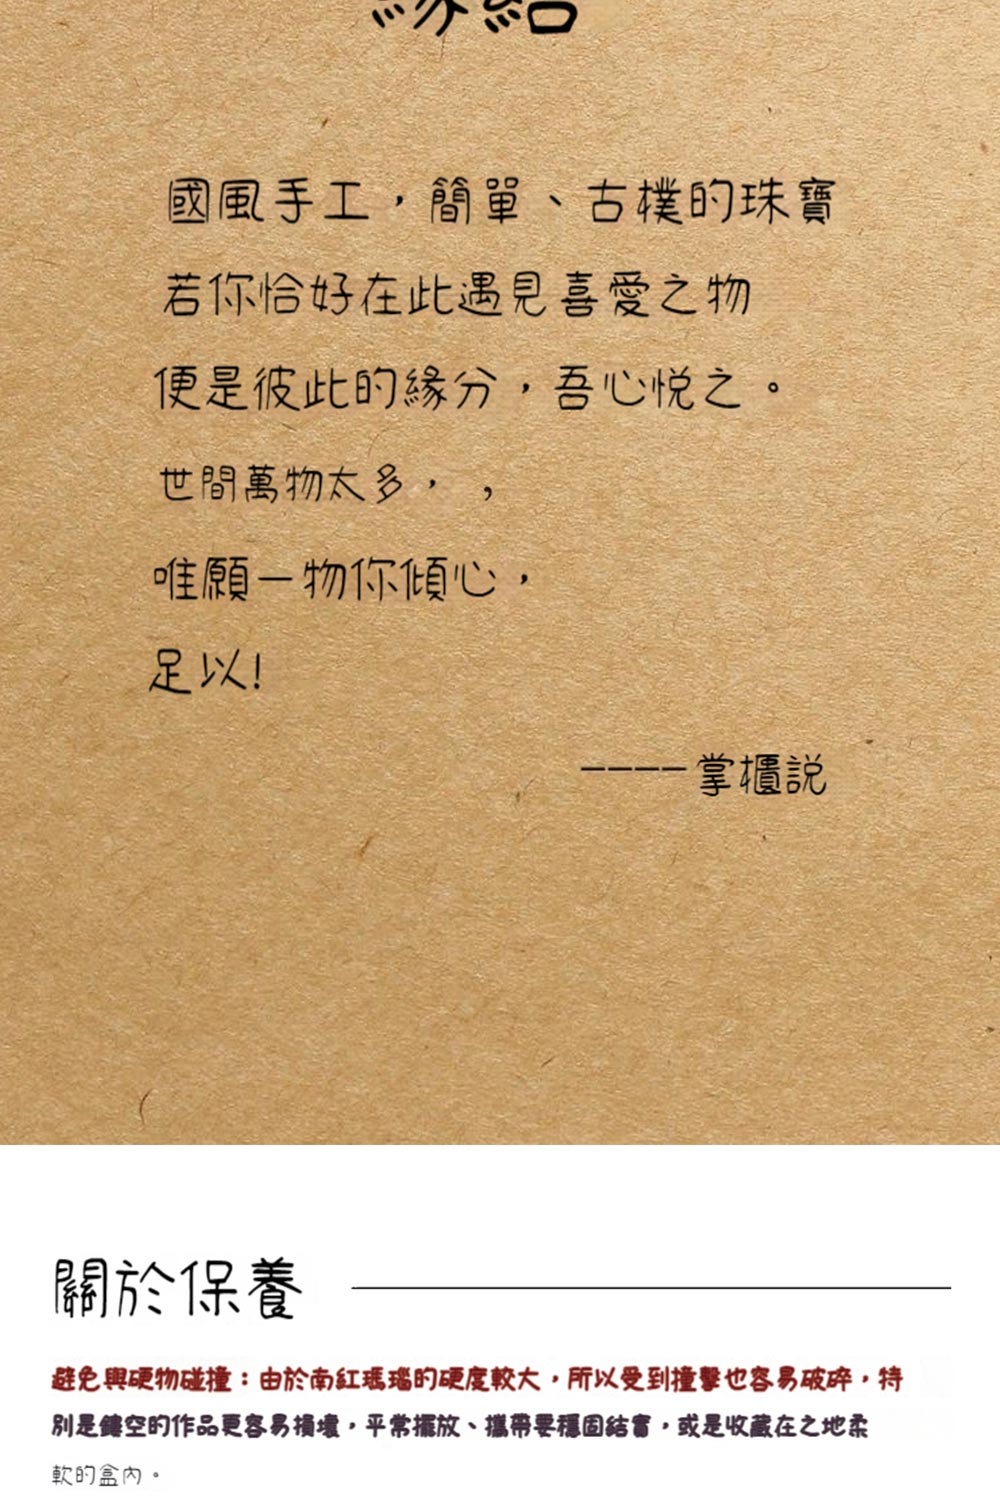 緣結
國風手工，簡單、古樸的珠寶
若你恰好在此遇見喜愛之物
便是彼此的緣分，吾心悅之。
世間萬物太多，，
唯願一物你傾心，
足以!
----掌櫃說
關於保養
避免與硬物碰撞：由於南紅瑪瑙的硬度較大，所以受到撞擊也容易破碎，特
別是鏤空的作品更容易損壞，平常擺放、攜帶要穩固結實，或是收藏在之地柔
軟的盒內。